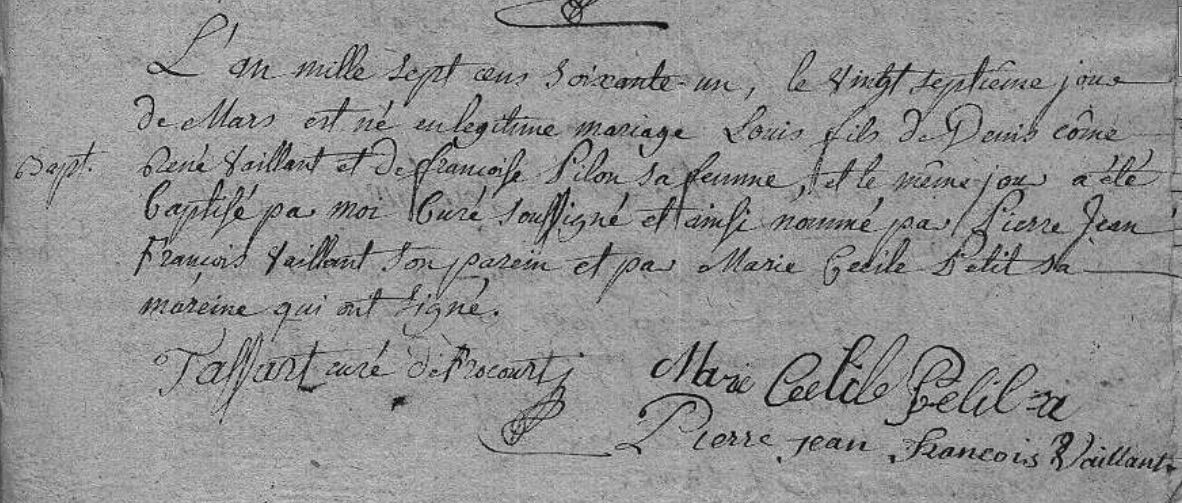 L'an mille sept cens soixante-un, le vingt septiême jour
de Mars est né en legitime mariage Louis fils de Denis côme
Bapt. René Vaillant et de françoise Pilon sa femme, et le même jour a été
baptisé par moi Curé soussigné et ainsi nommé par Pierre Jean
François Vaillant son parein et par Marie Cecile Petit sa
mareine qui ont signé.
Taffart curé de frocourt
Marie Cecile Petit
Pierre jean francois Vaillant